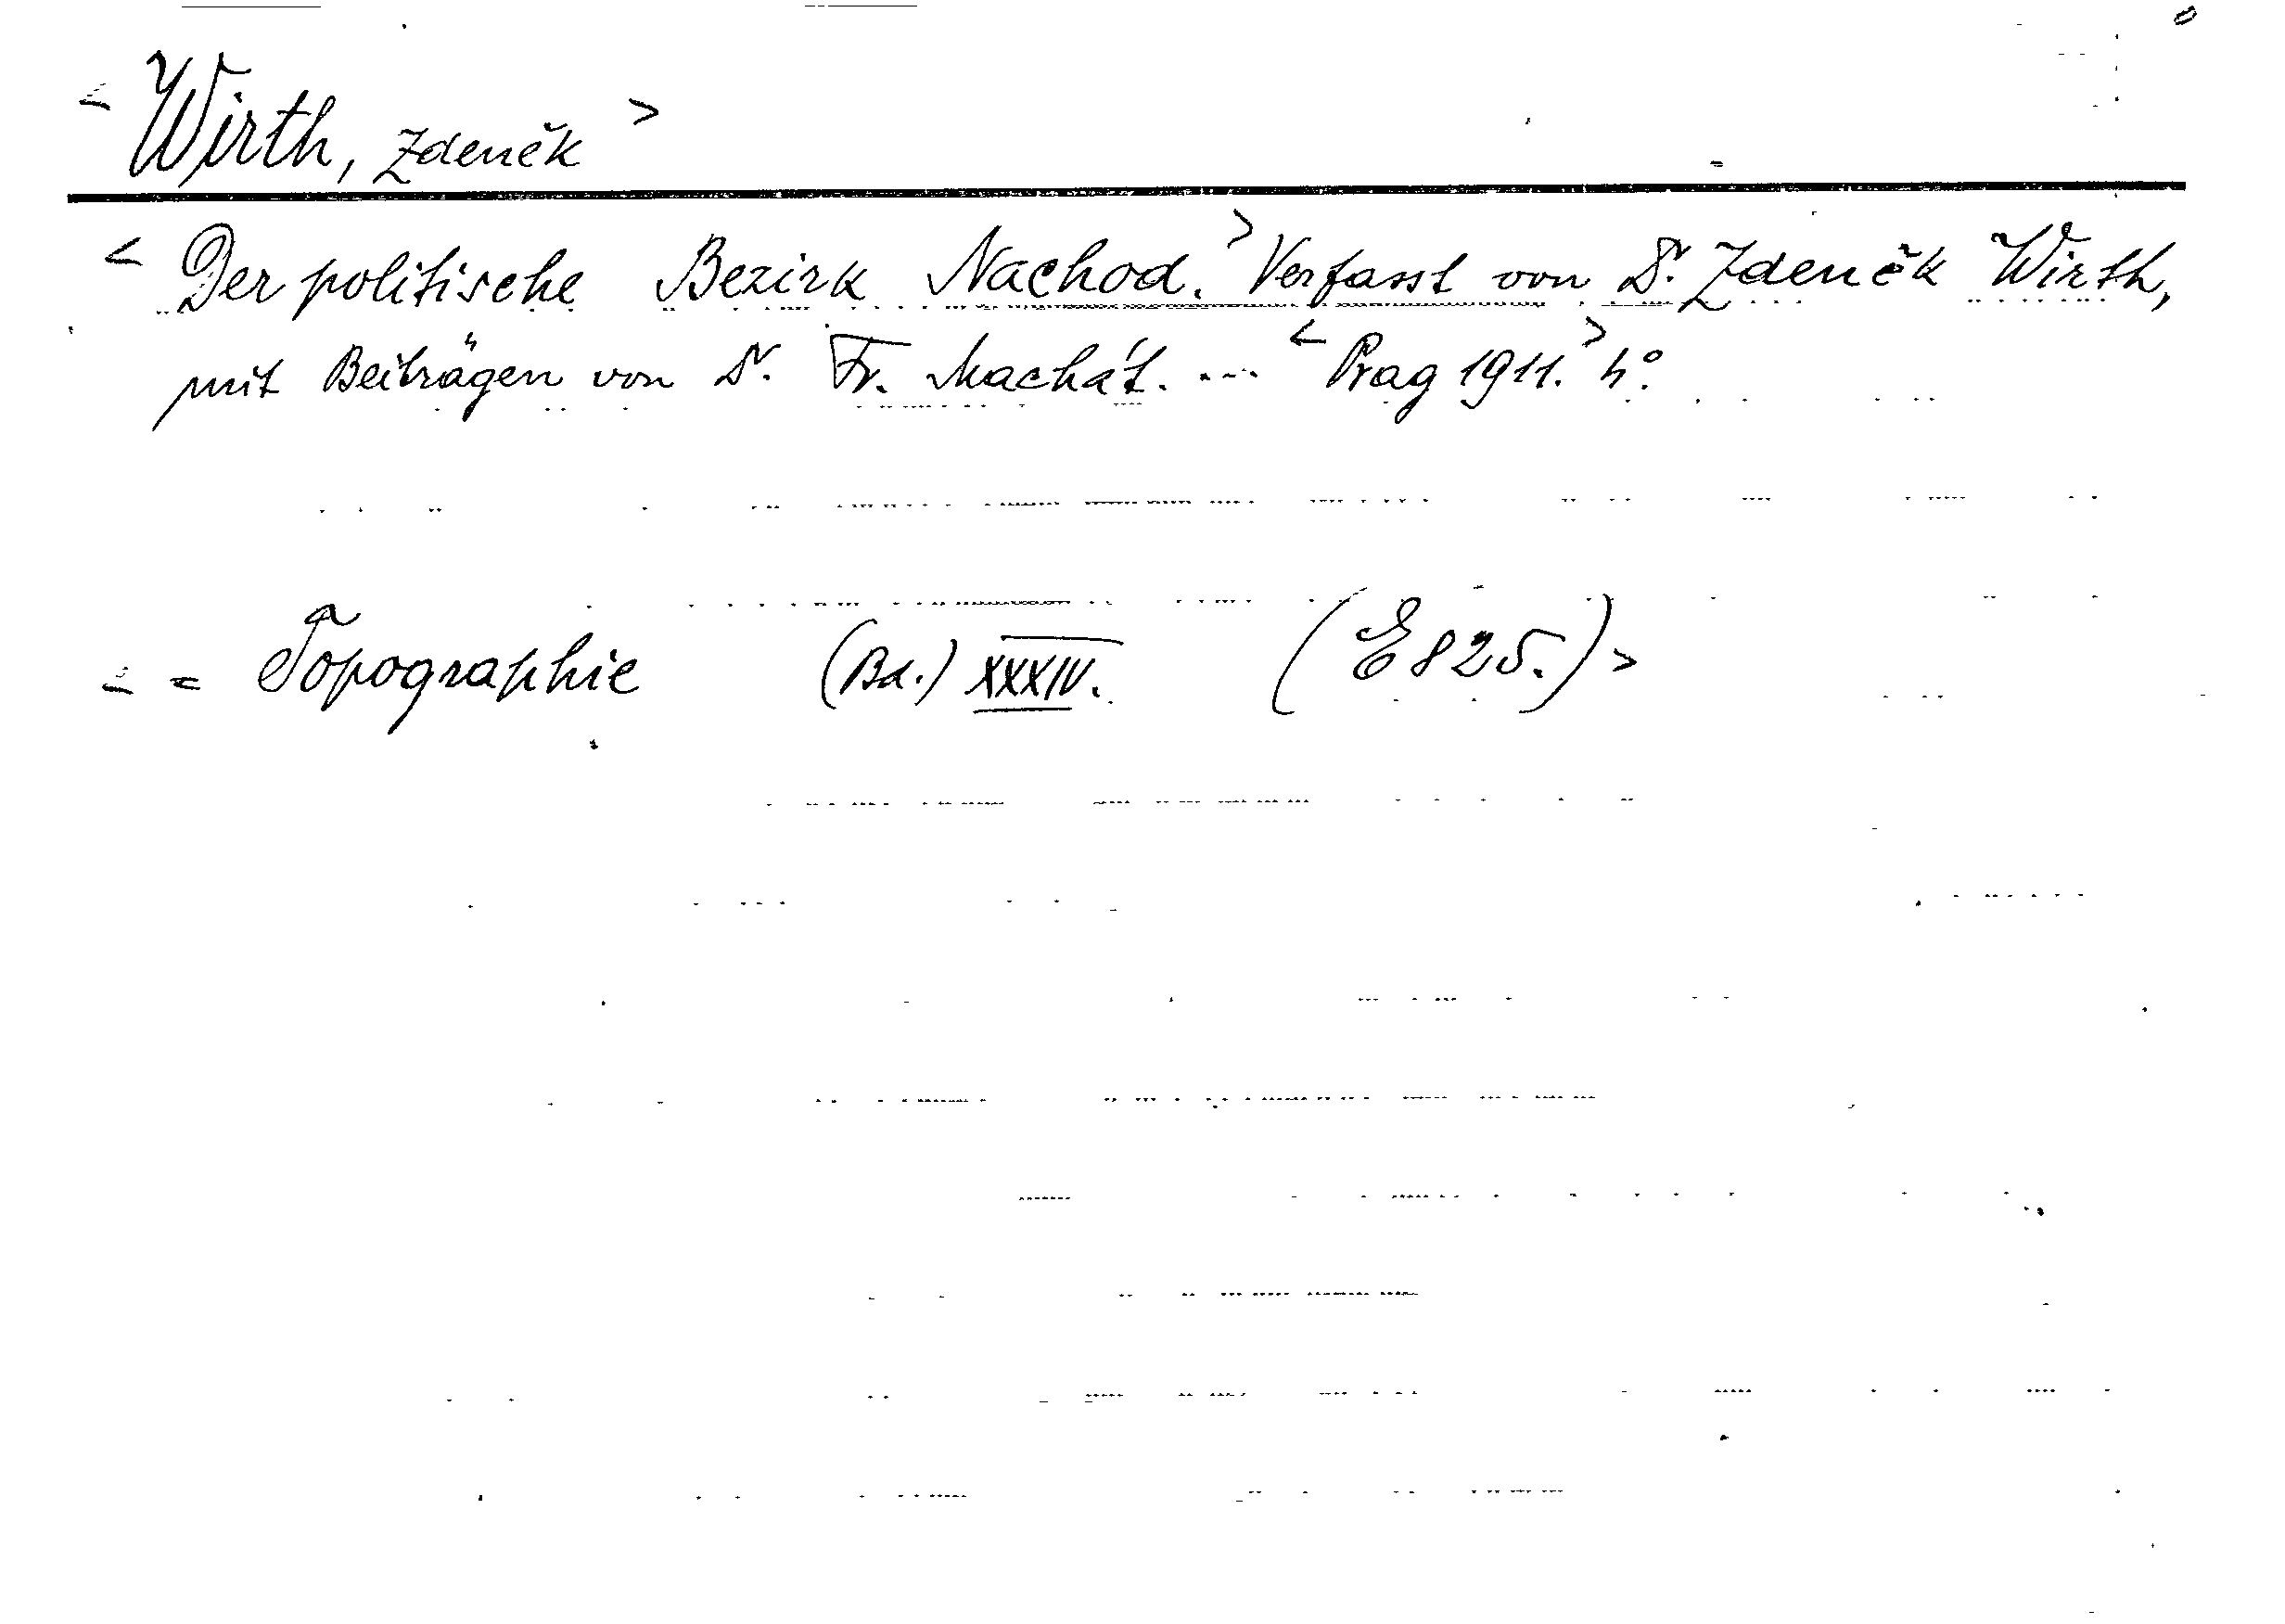 < Wirth, Zdeněk >
< Der politische Bezirk Nachod. > Verfasst von Dr. Zdeněk Wirth,
mit Beiträgen von Dr. Fr. Machát. ... < Prag 1911. > 4°.
< = Topographie (Bd.) XXXIV. (E 825.) >